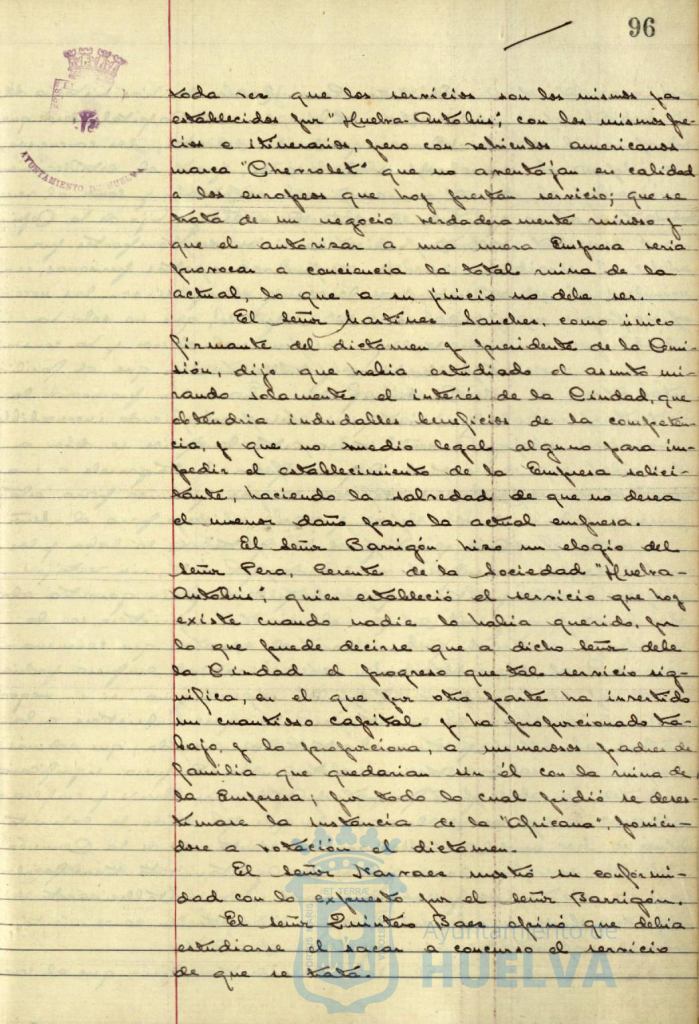 96
AYUNTAMIENTO DE HUELVA
toda vez que los servicios son los mismos ya
establecidos por "Huelva-Autobús", con los mismos pre-
cios e itinerarios, pero con vehiculos americanos
marca "Chevrolet" que no aventajan en calidad
a los europeos que hoy prestan servicio; que se
trata de un negocio verdaderamente ruinoso y
que el autorizar a una nueva Empresa seria
provocar a conciencia la total ruina de la
actual, lo que a su juicio no debe ser.
El Señor Martinez Sanchez, como único
firmante del dictamen y presidente de la Comi-
sión, dijo que habia estudiado el asunto mi-
rando solamente el interés de la Ciudad, que
obtendria indudables beneficios de la competen-
cia, y que no medio legal alguno para im-
pedir el establecimiento de la Empresa solici-
tante, haciendo la salvedad de que no desea
el menor daño para la actual empresa.
El Señor Barrigón hizo un elogio del
Señor Pera, Gerente de la Sociedad "Huelva-
Autobús", quien estableció el servicio que hoy
existe cuando nadie lo habia querido, por
lo que puede decirse que a dicho Señor debe
la Ciudad el progreso que tal servicio sig-
nifica, en el que por otra parte ha invertido
un cuantioso capital y ha proporcionado tra-
bajo, y lo proporciona, a numerosos padres de
familia que quedarian sin él con la ruina de
la Empresa; por todo lo cual pidió se deses-
timase la instancia de la "Africana", ponién-
dose a votación el dictamen.
El Señor Narvaez mostró su conformi-
dad con lo expuesto por el Señor Barrigón.
El Señor Quintero Baez opinó que debia
estudiarse el sacar a concurso el servicio
de que se trata.
Ayuntamiento de
HUELVA